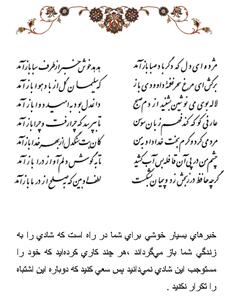 مژده ای دل که دگر باد صبا باز آمد هدهد خوش خبر از طرف سبا باز آمد
برکش ای مرغ سحر نغمه داوودی باز که سلیمان گل از باد هوا باز آمد
لاله بوی می نوشین بشنید از دم صبح داغ دل بود به امید دوا باز آمد
عارفی کو که کند فهم زبان سوسن تا بپرسد که چرا رفت و چرا باز آمد
مردمی کرد و کرم بخت خداداد به من کان بت سنگدل از بهر خدا باز آمد
چشم من در پی این قافله بس آب کشید تا به گوش دلم آواز درا باز آمد
گرچه حافظ در رنجش زد و پیمان بشکست لطف او بین که به صلح از در ما باز آمد
خبرهای بسیار خوشی برای شما در راه است که شادی را به
زندگی شما باز می‌گرداند ،هر چند کاری کرده‌اید که خود را
مستوجب این شادی نمی‌دانید پس سعی کنید که دوباره این اشتباه
را تکرار نکنید .